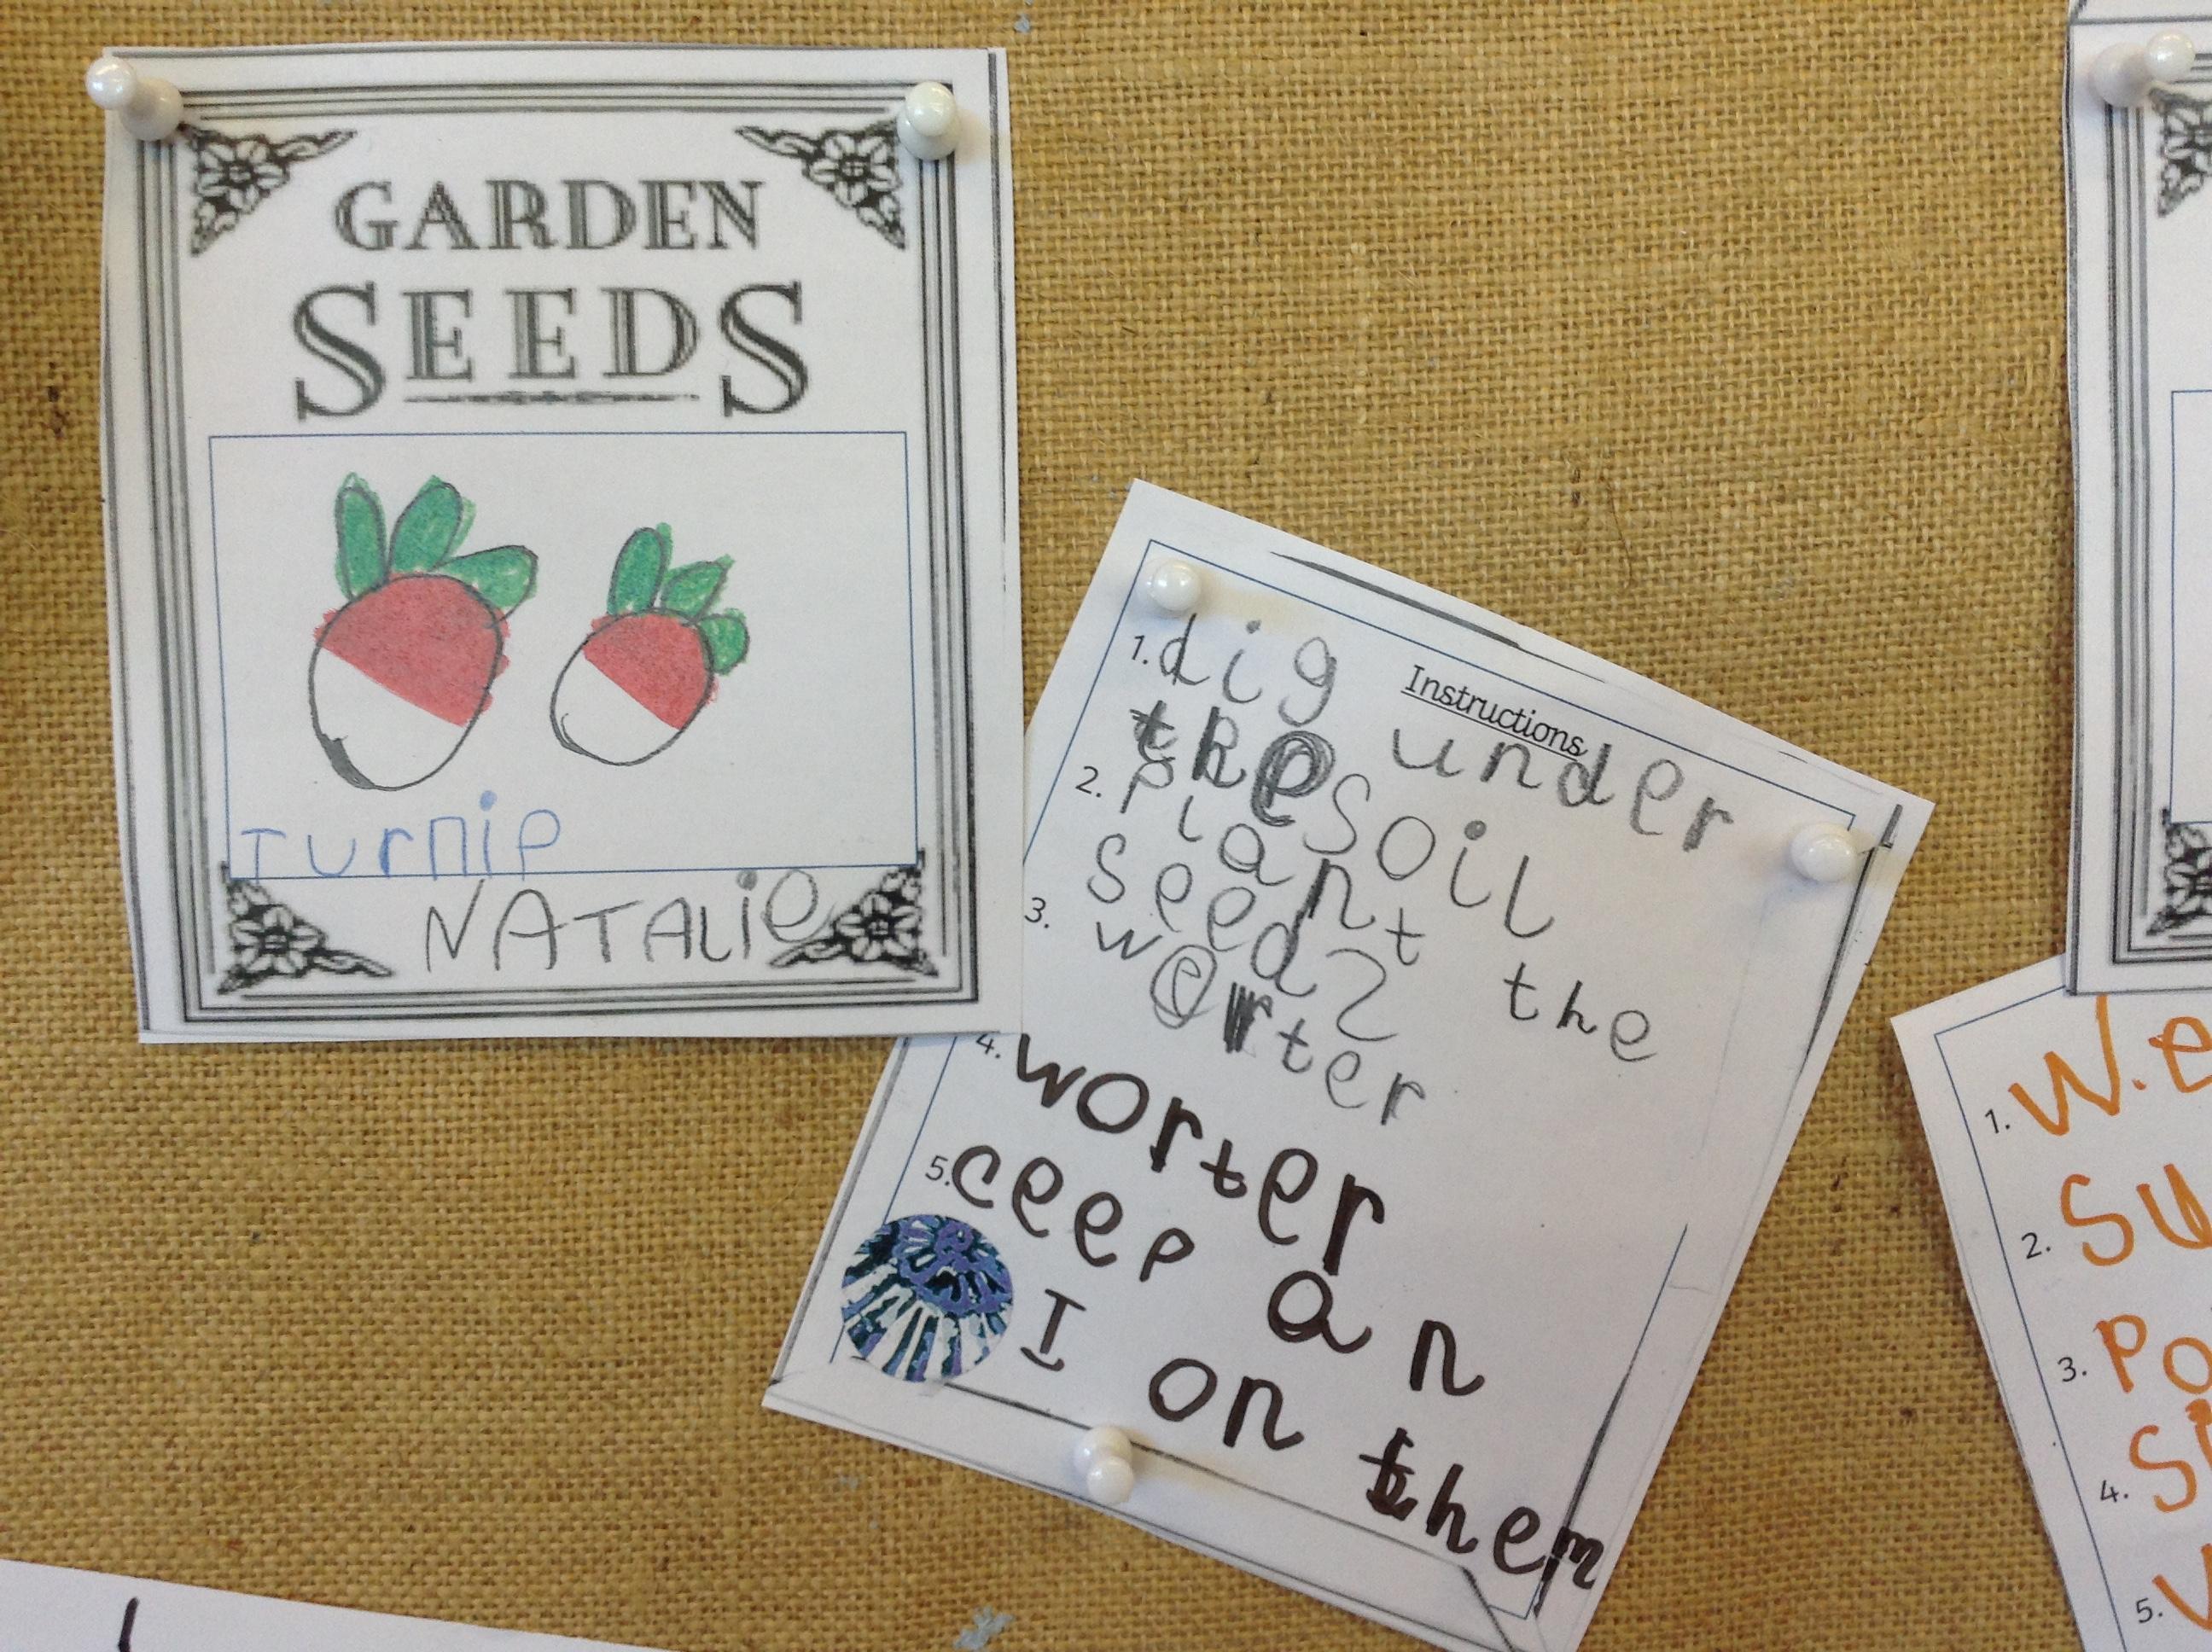 GARDEN
SEEDS
Turnip
NATALie
Instructions
1. dig under
the soil
2. plant the
seeds
3. werter
4. worter
5. ceep an
I on them
1. We
2. Su
3. Po
4. S
5.